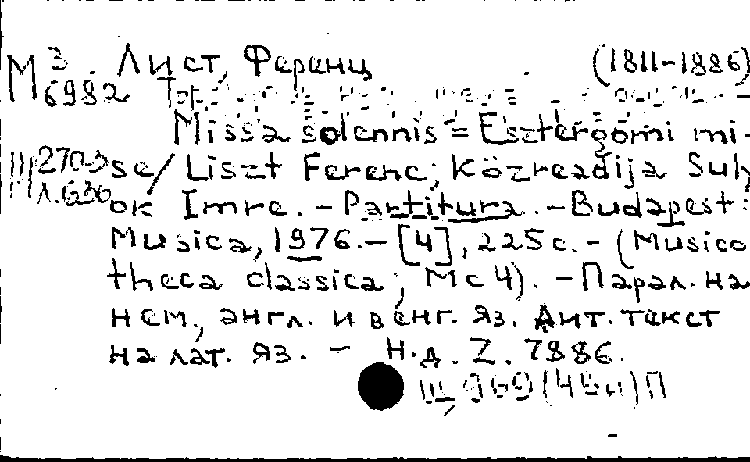 М 3 Лист, Ференц (1811-1886)
6982
Missa solennis = Esztergomi mi-
Ш 270-3 se / Liszt Ferenc; Közreadija Suly
Л.630 ok Imre. - Partitura. - Budapest:
Musica, 1976. - [4], 225 с. - (Musico
theca classica; Mc 4). - Парал. на
нем., англ. и венг. яз. Лит. текст
на лат. яз. - Н.д. Z. 7886.
Щ 969(4Вн)П